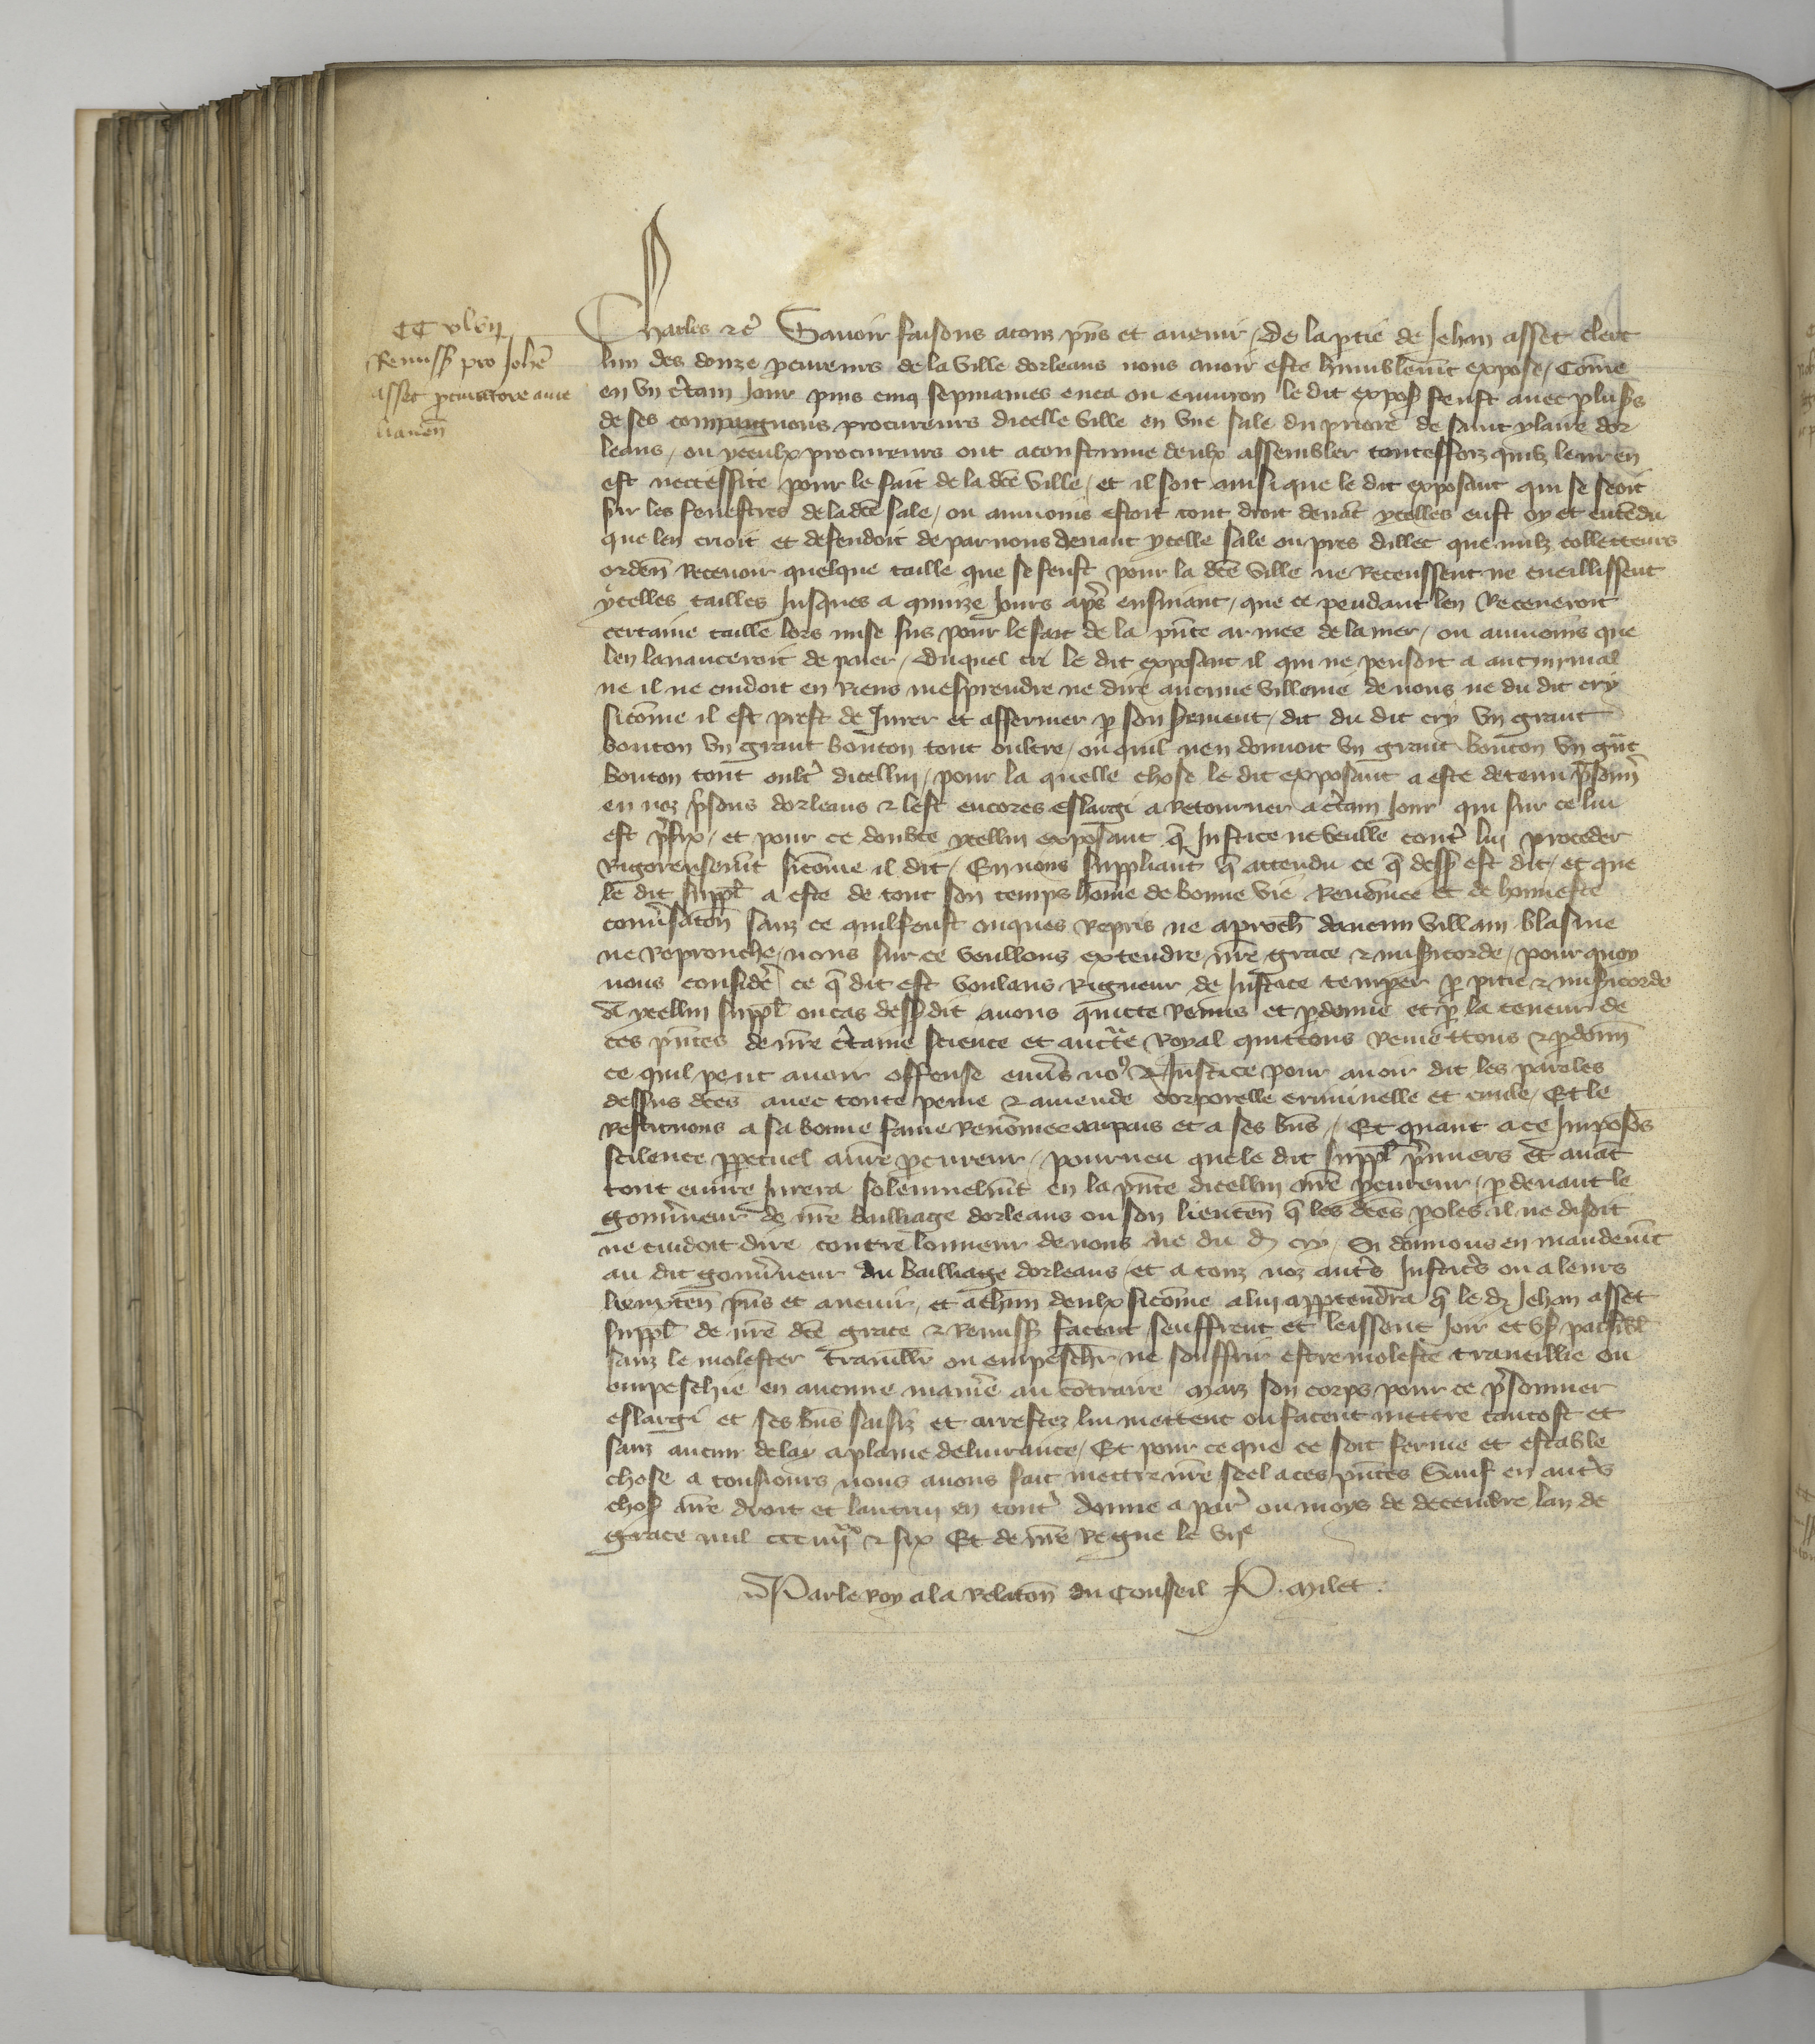 CC xlvii
Remiss pro Johe
Asset pcuratore aure
lianen
Charles etc Savoir faisons a touz pns et avenir / De la ptie de Jehan asset clerc
lun des douze pcureurs de la ville dorleans nous avoir este humblemt expose / Come
en un ctain jour puis cinq sepmaines enca ou environ le dit expos feust avec plus
de ses compaignons procureurs dicelle ville en une sale du priore de saint ylaire dor
leans / ou yceulx procureurs ont acoustume deulx assembler toutesfoiz quilz leur en
est neccessite pour le fait de la dce ville / et il soit ainsi que le dit exposant qui se seoit
sur les fenestres de la dce sale / ou aumoins estoit tout droit devat ycelles eust oy et entedu
que len crioit et defendoit de par nous devant ycelle sale ou pres dillec que nulz collecteurs
orden Recevoir quelque taille que se feust pour la dce ville ne Receussent ne cueillissent
ycelles tailles Jusques a quinze Jours aps ensuiant / que ce pendant len Receveroit
certaine taille lors mise sus pour le fait de la pnte armee de la mer / ou aumoins que
len lavanceroit de paier / duquel cri le dit exposant il qui ne pensoit a aucun mal
ne il ne cuidoit en Riens mesprendre ne dire aucune villenie de nous ne du dit cry
sicome il est prest de Jurer et affermer p son serement / dit du dit cry un grant
bouton un grant bouton tout oultre / ou quil nen donnoit un grant bouton un gnt
bouton tout oult dicellui / pour la quelle chose le dit exposant a este detenu prisonn
en noz prisons dorleans et lest encores eslargi a Retourner a ctain jour qui sur ce lui
est prefix / et pour ce doubte ycellui exposant q Justice ne veulle cont lui proceder
Rigoreusemt sicome il dit / En nous suppliant q attendu ce q dess est dit / et que
le dit suppl a este de tout son temps home de bonne vie Renomee et de honneste
conversaton sanz ce quil feust onques Repris ne aproch daucun villain blasme
ne Reprouche / nous sur ce veullons extendre nre grace et misicorde / pour quoy
nous consider ce q dit est voulans Rigueur de Justice temper p pitie et misicorde
A ycellui suppl ou cas dessus dit avons quicte Remis et pdonne et p la teneur de
ces pntes de nre ctaine science et auctte Royal quittons Remettons et pdonn
ce quil peut avoir offense envs no et Justice pour avoir dit les paroles
dessus dces avec toute peine et amende corporelle criminelle et civile / Et le
Restituons a sa bonne fame Renomee au pais et a ses bns / Et quant a ce Imposos
scilence ppetuel a nre pcureur / pourveu que le dit suppl primiers et avat
tout euvre Jurera solennelmt en la pnce dicellui nre pcureur / p devant le
gouvneur de nre bailliage dorleans ou son lieuten q les dces poles il ne disoit
ne cuidoit dire contre lonneur de nous ne du d cry / Si donnons en mandemt
au dit gouvneur du bailliage dorleans / et a touz noz auts Justics ou a leurs
lieuxten pns et avenir / et a chun deulx sicome a lui apptendra q le d Jehan asset
suppl de nre dce grace et Remiss facent seuffrent et leissent Joir et us paisibl
sanz le molester travaill ou empescher ne souffrir estre moleste traveillie ou
empeschie en aucune maniere au contraire / Maiz son corps pour ce prisonnier
eslargi et ses bns saisiz et arrestez lui mettent ou facent mettre tantost et
sanz aucun delay a plaine delivrance / Et pour ce que ce soit ferme et estable
chose a tousiours nous avons fait mettre nre seel a ces pntes Sauf en auts
chos nre droit et lautrui en tout donne a par ou moys de decembre lan de
grace mil ccc iiiixx et six Et de nre Regne le vije
Par le Roy a la Relaton du Conseil P. Milet.